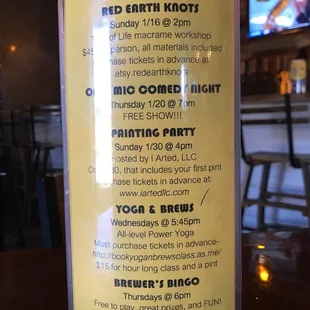 RED EARTH KNOTS
Sunday 1/16 @ 2pm
of Life macrame workshop
person, all materials included
chase tickets in advance at:
etsy.redearthknots
MIC COMEDY NIGHT
Thursday 1/20 @ 7pm
FREE SHOW!!!
PAINTING PARTY
Sunday 1/30 @ 4pm
Hosted by I Arted, LLC
that includes your first pint
chase tickets in advance at:
www.iartedllc.com
YOGA & BREWS
Wednesdays @ 5:45pm
All-level Power Yoga
Must purchase tickets in advance-
http://bookyoganbrewsclass.as.me/
$15 for hour long class and a pint
BREWER'S BINGO
Thursdays @ 6pm
Free to play, great prizes, and FUN!